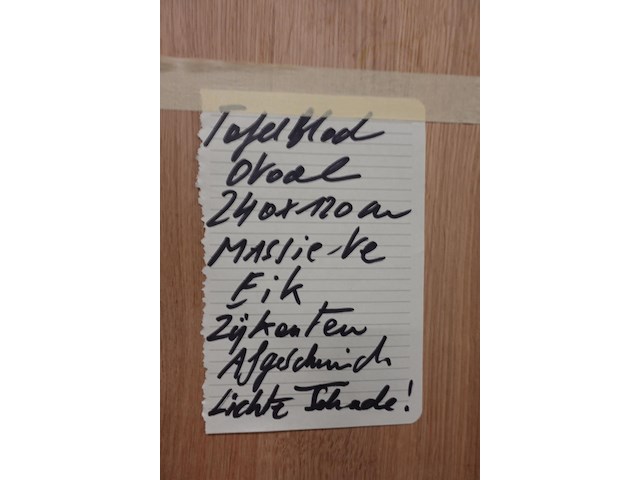 Tafelblad
Ovaal
240x120 cm
Massieve
Eik
Zijkanten
Afgeschuind
Lichte Schade!